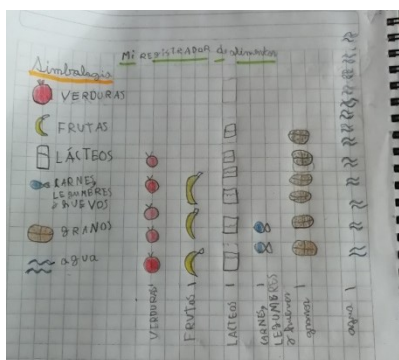 Mi REGISTRADOR de alimentos
Simbologia
VERDURAS
FRUTAS
LÁCTEOS
CARNES,
LEGUMBRES
y HUEVOS
granos
agua
VERDURAS
FRUTAS
LACTEOS
CARNES,
LEGUMBRES
y huevos
granos
agua